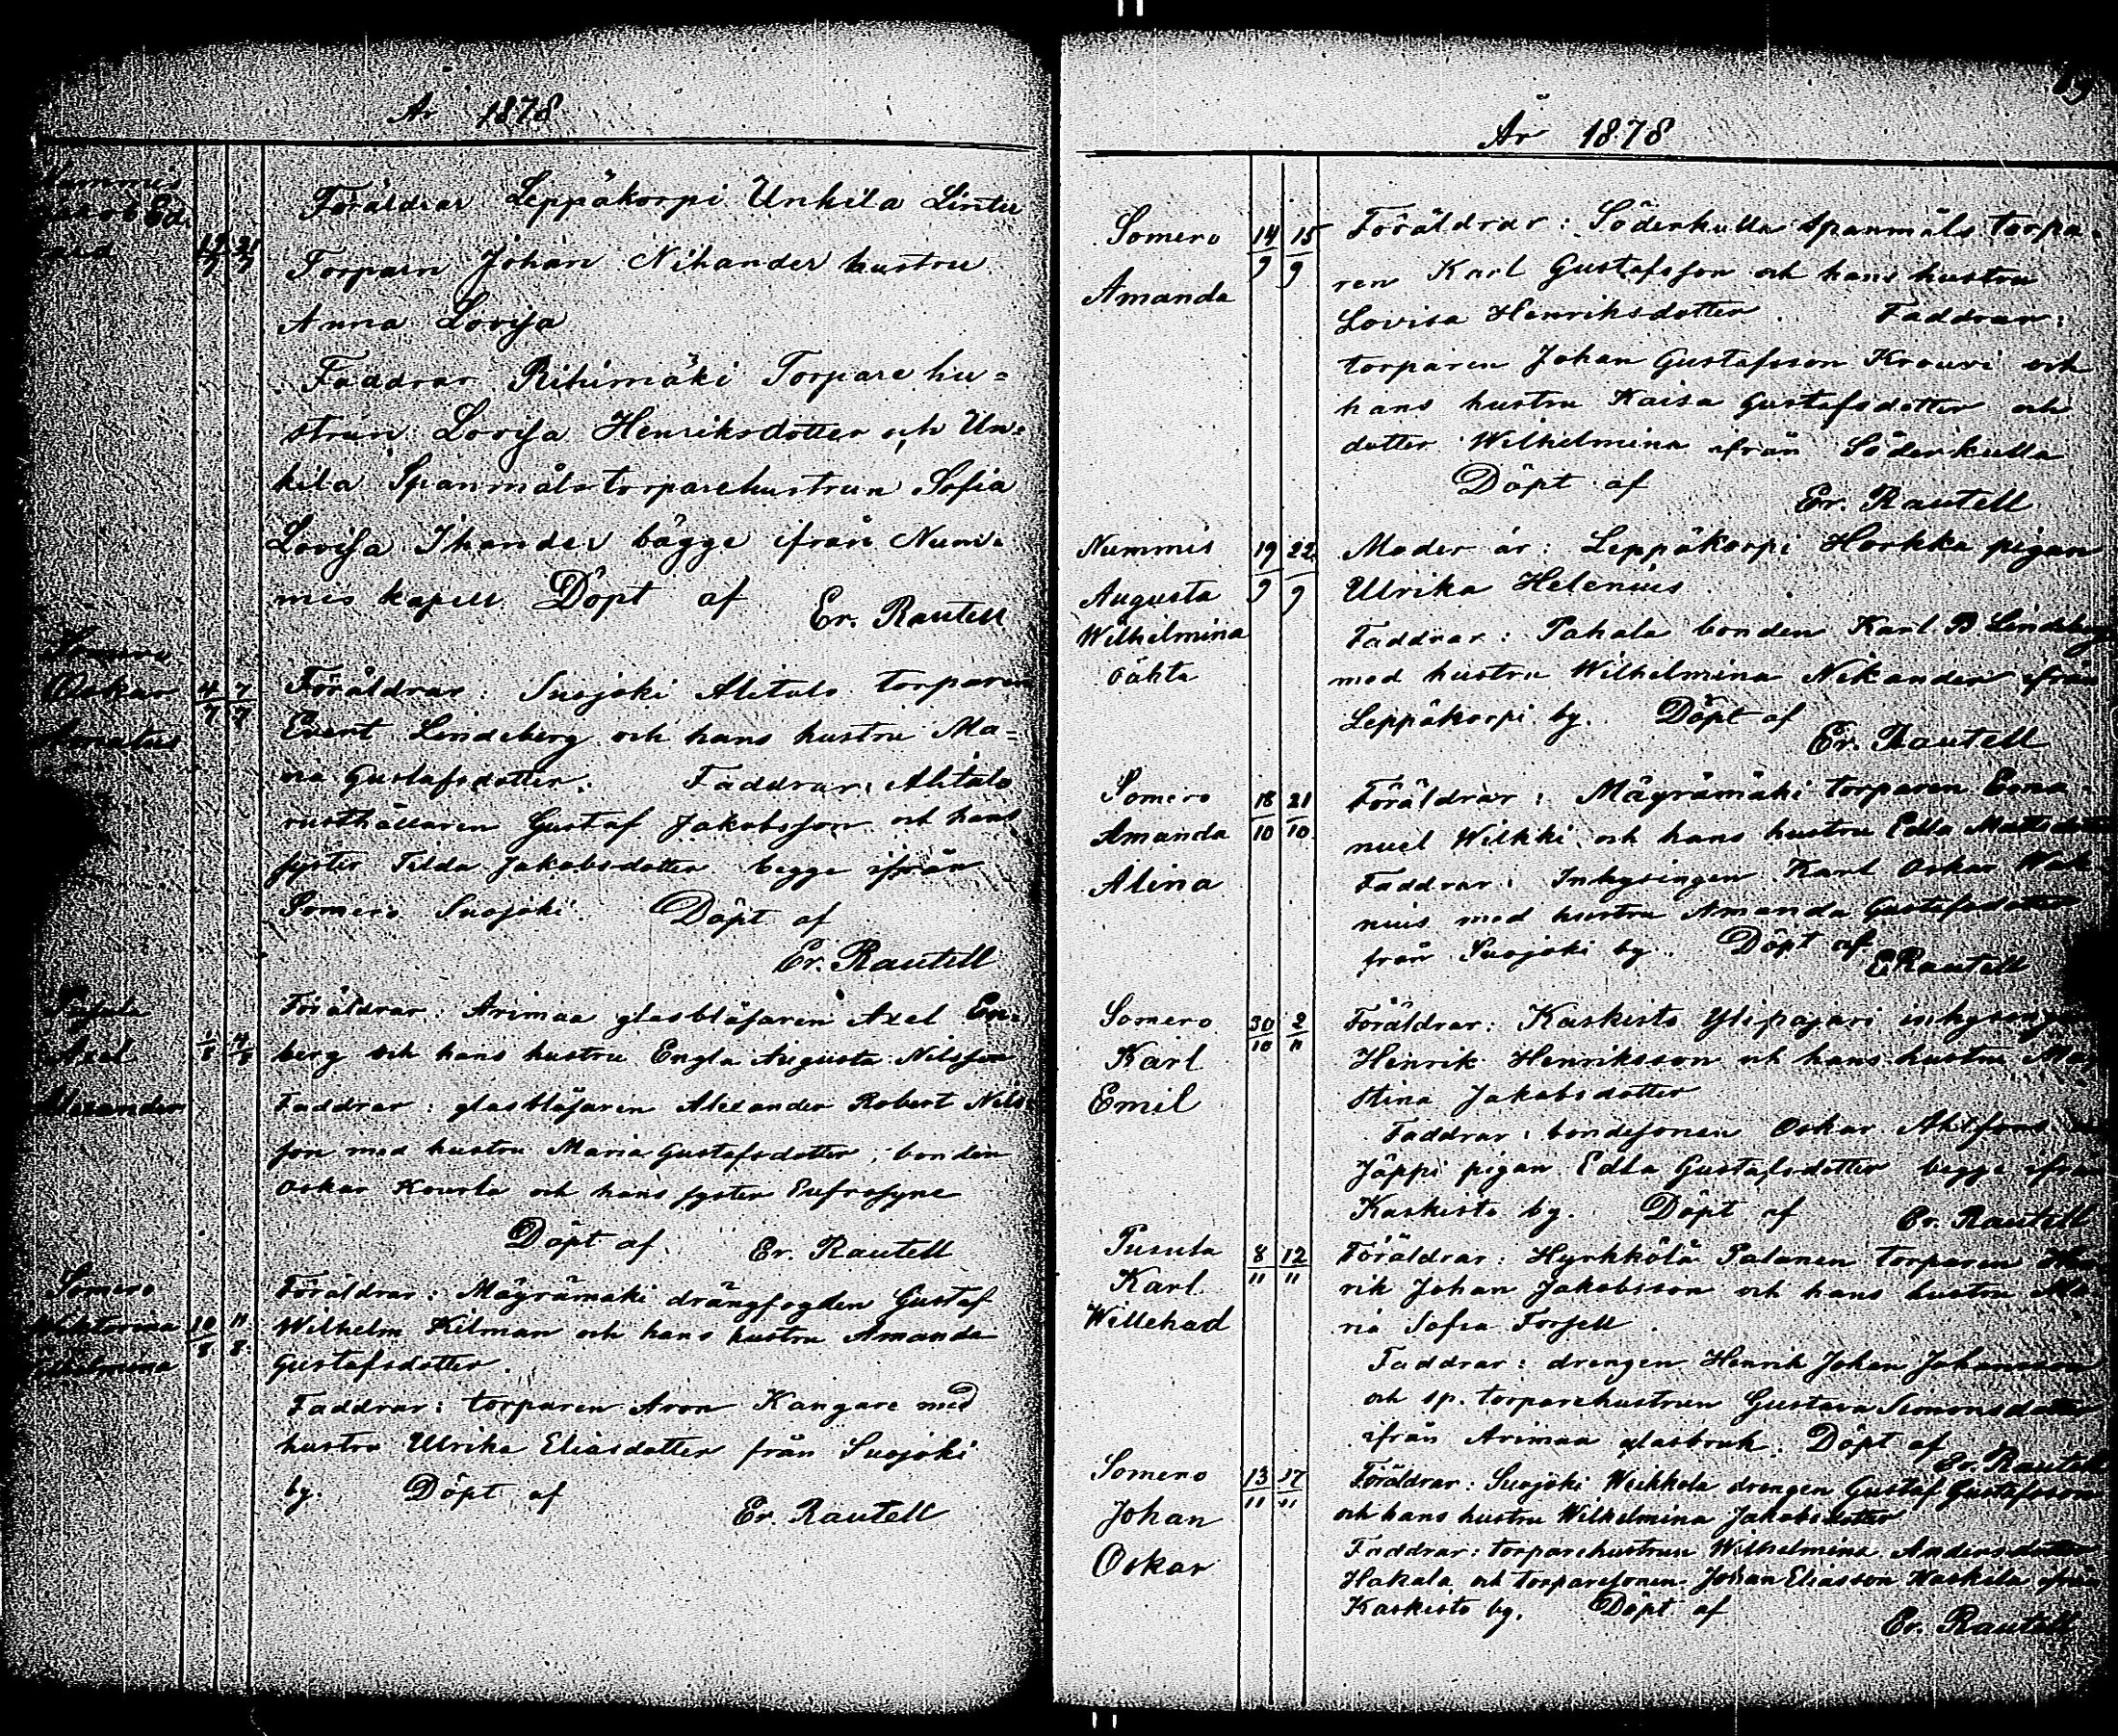 År 1878
Nummis
Jakob Ed.
vard
19/7 21/7
Föräldrar Leppäkorpi Unkila Linter
Torparn Johan Nikander hustru
Anna Lovisa
Faddrar Rihimäki Torpare hu=
strun Lovisa Henriksdotter och Un=
kila Spanmåls torparehustrun Sofia
Lovisa Ikander bägge ifrån Num=
mis kapell Döpt af
Er. Rautell
Somero
Oskar
Amatus
4/7 7/7
Föräldrar: Suojoki Alitalo torparen
Evert Lindeberg och hans hustru Ma=
ria Gustafsdotter. Faddrar: Alitalo
rusthållaren Gustaf Jakobsson och hans
syster Tilda Jakobsdotter begge ifrån
Somero Suojoki. Döpt af
Er. Rautell
Pusula
Axel
Alexander
1/8 4/8
Föräldrar: Arimaa glasblåsaren Axel En=
berg och hans hustru Engla Augusta Nilsson
Faddrar: glasblåsaren Alexander Robert Nils=
son med hustru Maria Gustafsdotter, bonden
Oskar Kourla och hans syster Eufrosyne
Döpt af Er. Rautell
Somero
Wiktorina
Wilhelmina
10/8 11/8
Föräldrar: Mägrämäki drängfogden Gustaf
Wilhelm Kilman och hans hustru Amanda
Gustafsdotter.
Faddrar: torparen Aron Kangare med
hustru Ulrika Eliasdotter från Suojoki
by. Döpt af
Er. Rautell
89
År 1878
Somero
Amanda
14/9 15/9
Föräldrar: Söderkulla spanmåls torpa=
ren Karl Gustafsson och hans hustru
Lovisa Henriksdotter. Faddrar:
torparen Johan Gustafsson Krouvi och
hans hustru Kaisa Gustafsdotter och
dotter Wilhelmina ifrån Söderkulla
Döpt af
Er. Rautell
Nummis
Augusta
Wilhelmina
oäkta
19/9 22/9
Moder är: Leppäkorpi Horkka pigan
Ulrika Helenius.
Faddrar: Pahala bonden Karl B. Lindeberg
med hustru Wilhelmina Nikander ifrån
Leppäkorpi by. Döpt af
Er. Rautell
Somero
Amanda
Alina
18/10 21/10
Föräldrar: Mägrämäki torparen Ema=
nuel Wilkki och hans hustru Edla Matsdotter
Faddrar: Inhysingen Karl Oskar
nius med hustru Amanda Gustafsdotter
från Suojoki by. Döpt af
E Rautell
Somero
Karl
Emil
30/10 2/11
Föräldrar: Kaskisto Ylipajari inhysingen
Henrik Henriksson och hans hustru
Stina Jakobsdotter
Faddrar: bondesonen Oskar Ahlfors
Jäppi pigan Edla Gustafsdotter begge ifrån
Kaskisto by. Döpt af Er. Rautell
Pusula
Karl
Willehad
8/11 12/11
Föräldrar: Hyrkkölä Palanen torparen Hen
rik Johan Jakobsson och hans hustru Ma
ria Sofia Forsell.
Faddrar: drengen Henrik Johan Johansson
och sp. torparehustrun Gustava Simonsdotter
ifrån Arimaa glasbruk. Döpt af
Er. Rautell
Somero
Johan
Oskar
13/11 17/11
Föräldrar: Suojoki Weikkola drengen Gustaf Gustafsson
och hans hustru Wilhelmina Jakobsdotter
Faddrar: torparehustrun Wilhelmina Andersdotter
Hakala och torparesonen Johan Eliasson Haskila ifrån
Kaskisto by. Döpt af
Er. Rautell